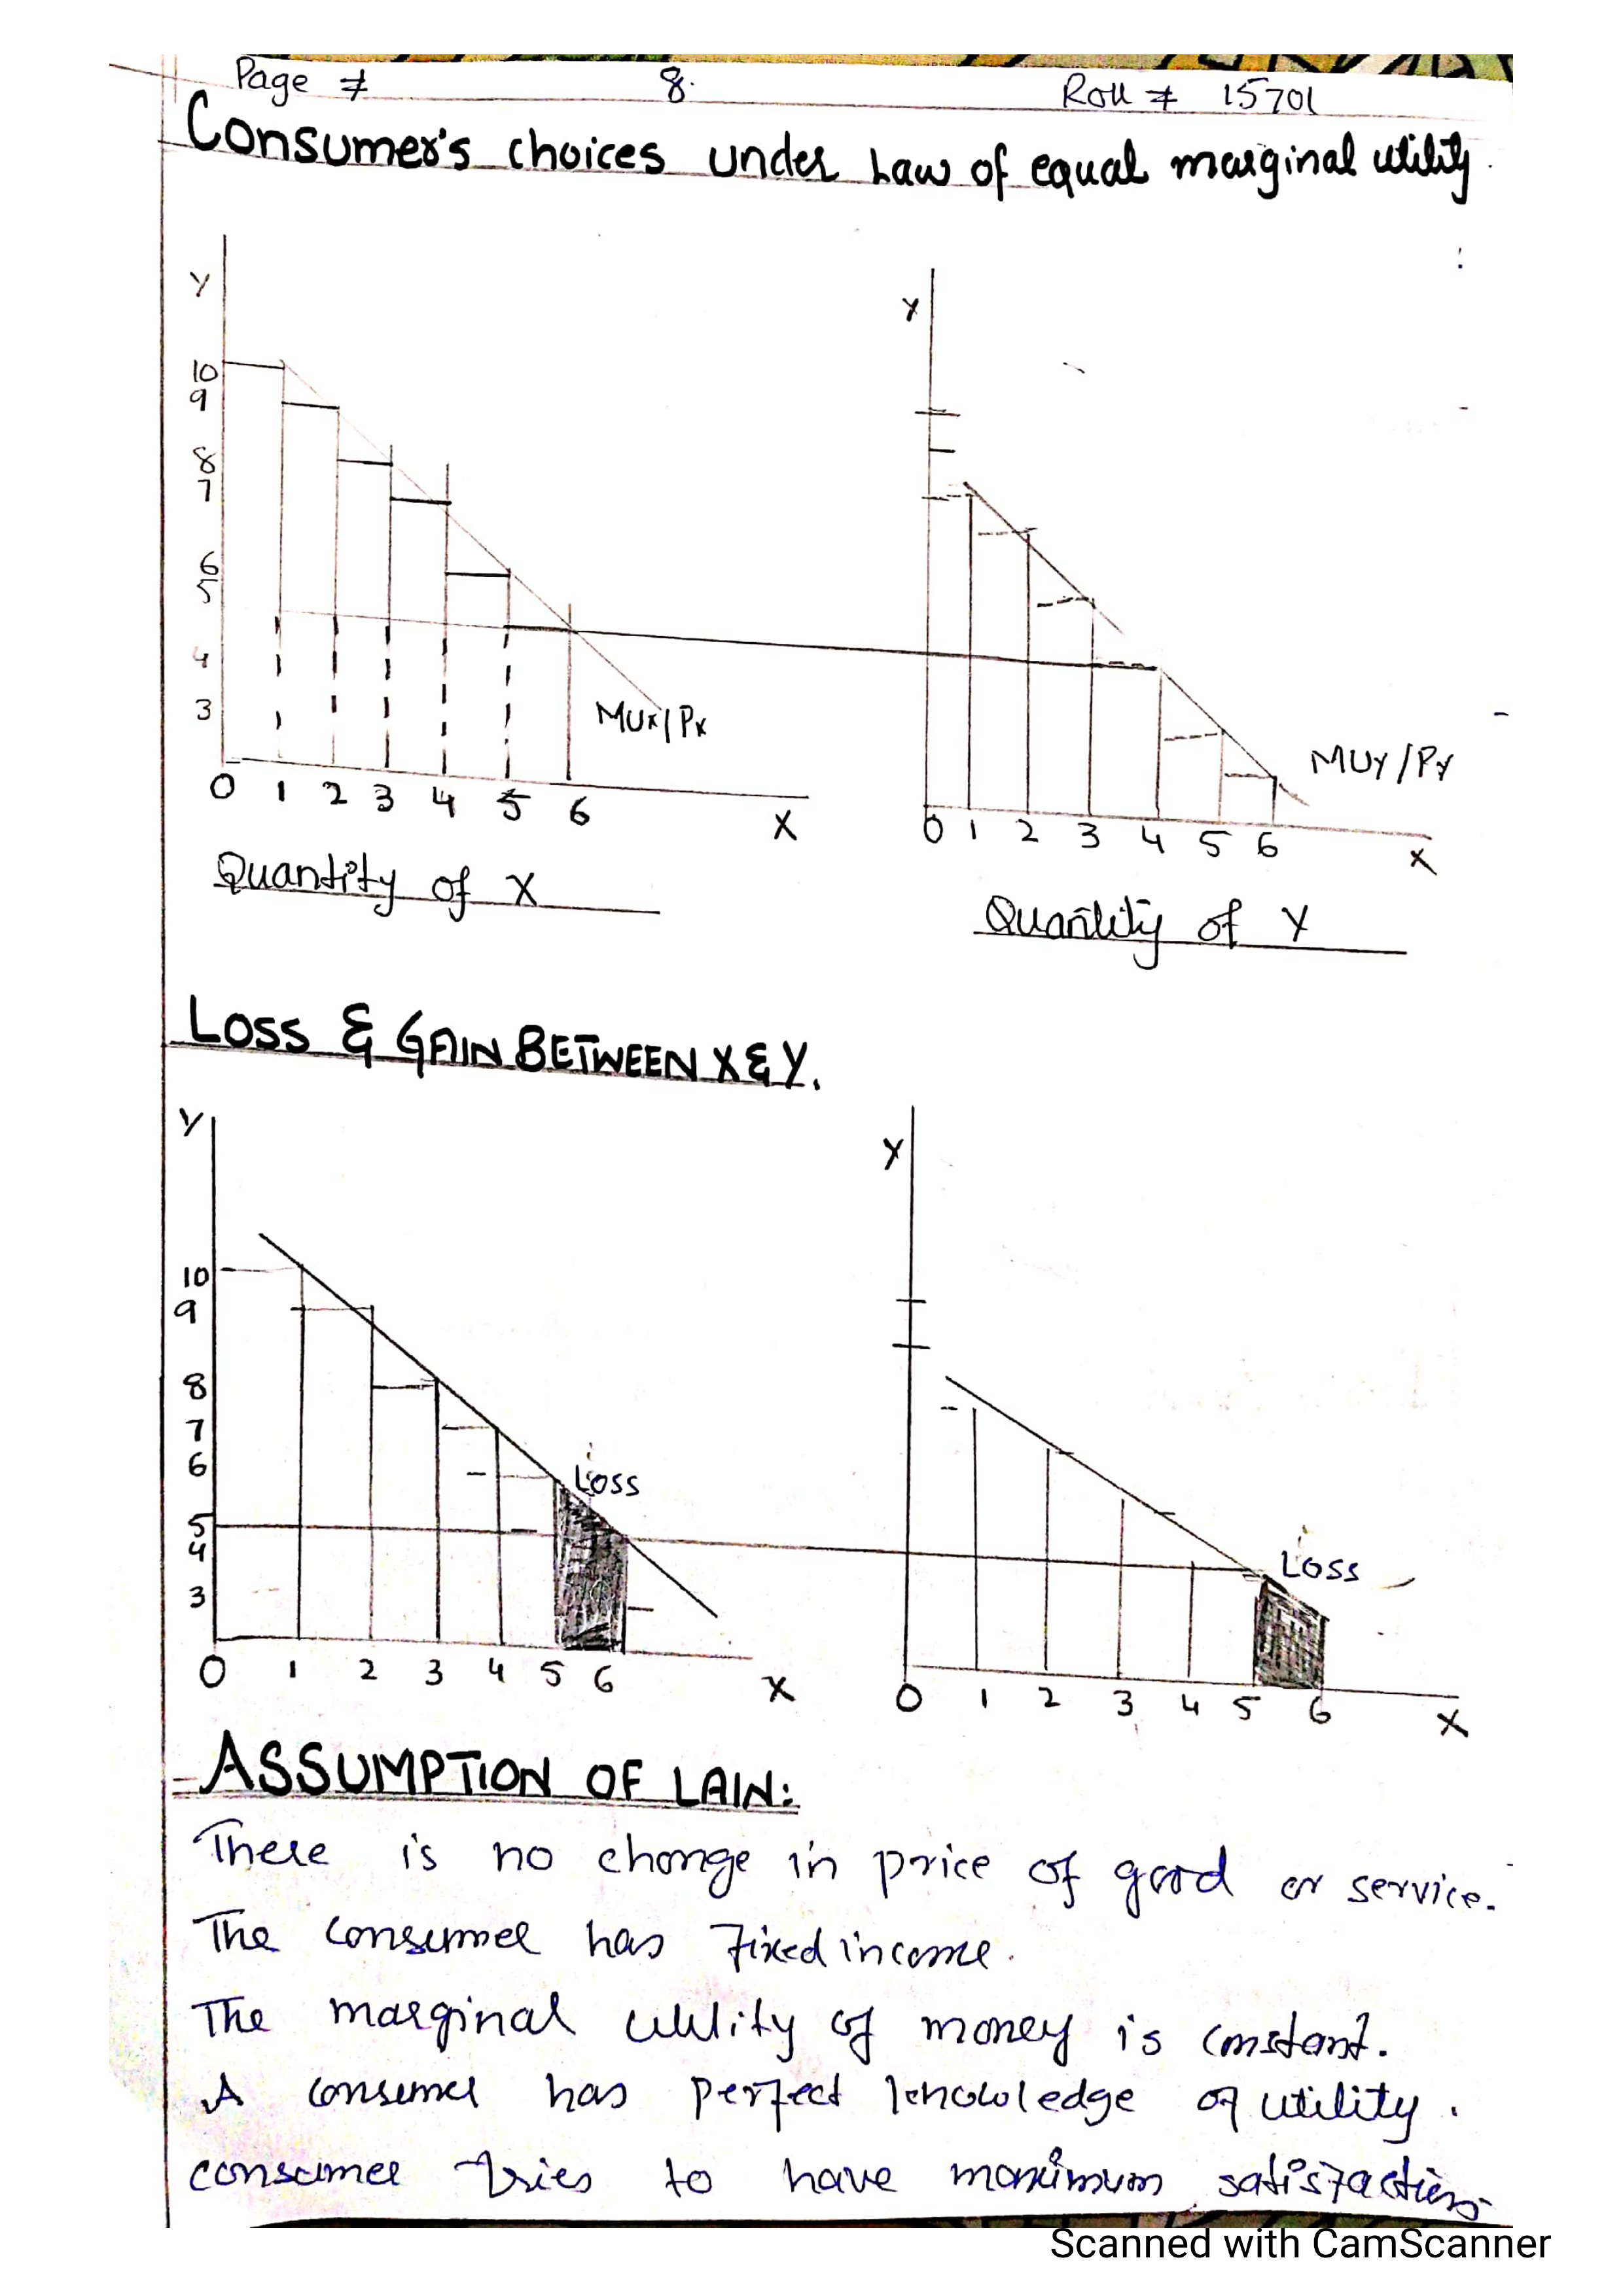 Page # 8. Roll # 15701
Consumer's choices under Law of equal marginal utility.
Y
10
9
8
7
6
5
4
3
0 1 2 3 4 5 6
X
MUx/Px
Quantity of X
Y
0 1 2 3 4 5 6
X
MUy/Py
Quantity of Y
LOSS & GAIN BETWEEN X & Y.
Y
10
9
8
7
6
5
4
3
0 1 2 3 4 5 6
X
Loss
Y
0 1 2 3 4 5 6
X
Loss
ASSUMPTION OF LAIN:
There is no change in price of good or service.
The consumer has Fixed income.
The marginal utility of money is constant.
A consumer has perfect knowledge of utility.
consumer tries to have maximum satisfaction
Scanned with CamScanner